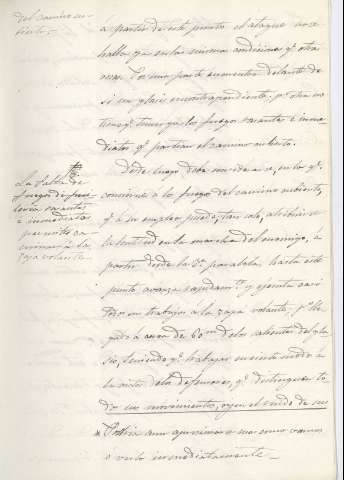 del camino cu-
bierto.
á partir de este punto el ataque no se
halla ya en las mismas condiciones qe. otras
veces. Por una parte encuentra delante de
si un glacis en contrapendiente, pr. otra no
tiene qe. temer ya los fuegos rasantes é inme-
diatos qe. partian del camino cubierto.
La falta de
fuegos de fusi-
lería rasantes
é inmediatos
permite ca-
minar á la
zapa volante.
Desde luego debe considerarse, en lo qe.
concierne á los fuegos del camino cubierto,
qe. á su empleo puede, tan solo, atribuirse
la lentitud en la marcha del enemigo; á
partir desde la 3a. paralela, hasta este
punto avanza rapidamte. y ejecuta casi
todos sus trabajos á la zapa volante; pr. lle-
gado á cerca de 60 m. de los salientes del gla-
sis, teniendo qe. trabajar en cierto modo á
la vista de los defensores, qe. distinguen to-
dos sus movimientos, oyen el ruido de sus
* Podria aun aproximarse mas como vamos
á verlo inmediatamente.